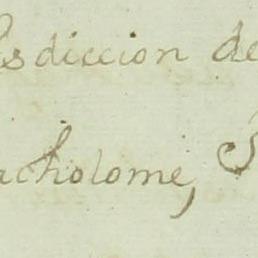 sdiccion de
acholome,